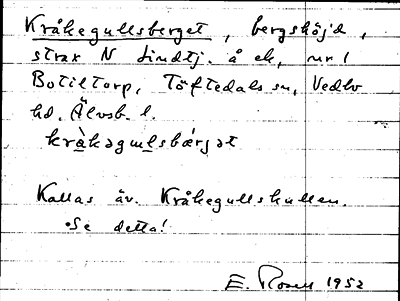 Kråkegullsberget, bergshöjd,
strax N Lindtj. å ek, nr 1
Botiltorp, Töftedals sn, Vedbo
hd. Älvsb. l.
kràkagmlsbærjat
Kallas äv. Kråkegullskullen.
Se detta!
E. Rosell 1952